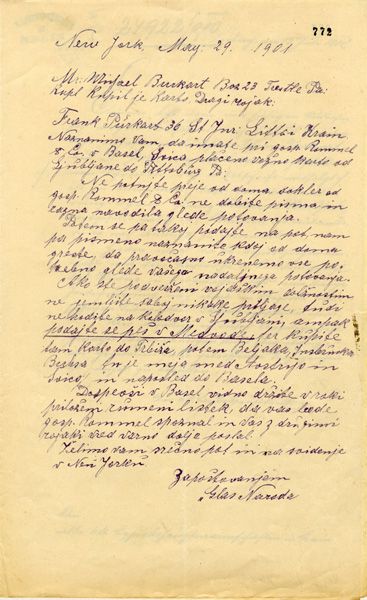 772
New York, May. 29. 1901
Mr Michael Burkart Box 23 Trestle Pa:
kupil je karto Dragi rojak:
Frank Purkart 36. St Jur: Littai Krain
Naznanimo Vam da imate pri gosp. Rommel
& Co. v Basel, plačeno vožno karto od
Ljubljane do Pittsburg Pa:
Ne potujte preje od doma dokler od
gosp. Rommel & Co. ne dobite pisma in
navodila glede potovanja.
Potem se pa takoj podajte na pot, nam
pa pismeno naznanite kdaj od doma
greste, da pravočasno ukrenemo vse po-
trebno glede vašega nadaljnega potovanja.
Ako ste podvrženi vojaškim dolžnostim
ne jemljite saboj nikake prtljage, tudi
ne hodite na kolodvor v Ljubljani, ampak
podajte se peš v Medvode, ker kupite
tam karto do Trbiža, potem Beljaka, Insbrucka
Buchsa, to je meja med Avstrijo in
Švico, in naposled do Basela.
Dospevši v Basel vidno držite v roki
priložen rumeni listek, da vas bode
gosp. Rommel spoznal in Vas z drugimi
rojaki vred varno dalje poslal.
Želimo vam srečno pot in na svidenje
v New Yorku
Za poštovanjem
"Glas Naroda